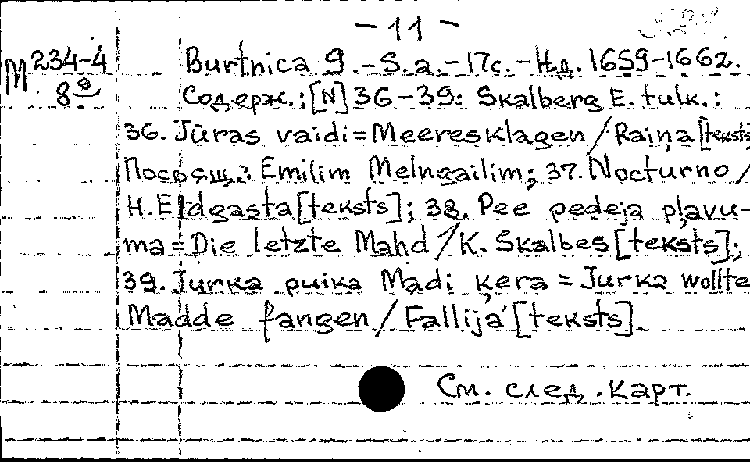 - 11 -
M 234-4 Burtnica 9. - S.a. - 17c. - Н.д. 1659-1662.
8° Содерж.: [N] 36-39: Skalberg E. tulk.:
36. Jūras vaidi = Meeresklagen / Raiņa [teksts]
Посвящ.: Emilim Melngailim; 37. Nocturno /
H. Eldgasta [teksts]; 38. Pee pedeja pļavu-
ma = Die letzte Mahd / K. Skalbes [teksts];
39. Jurka puika Madi ķera = Jurka wollte
Madde fangen / Fallija [teksts].
См. след. карт.